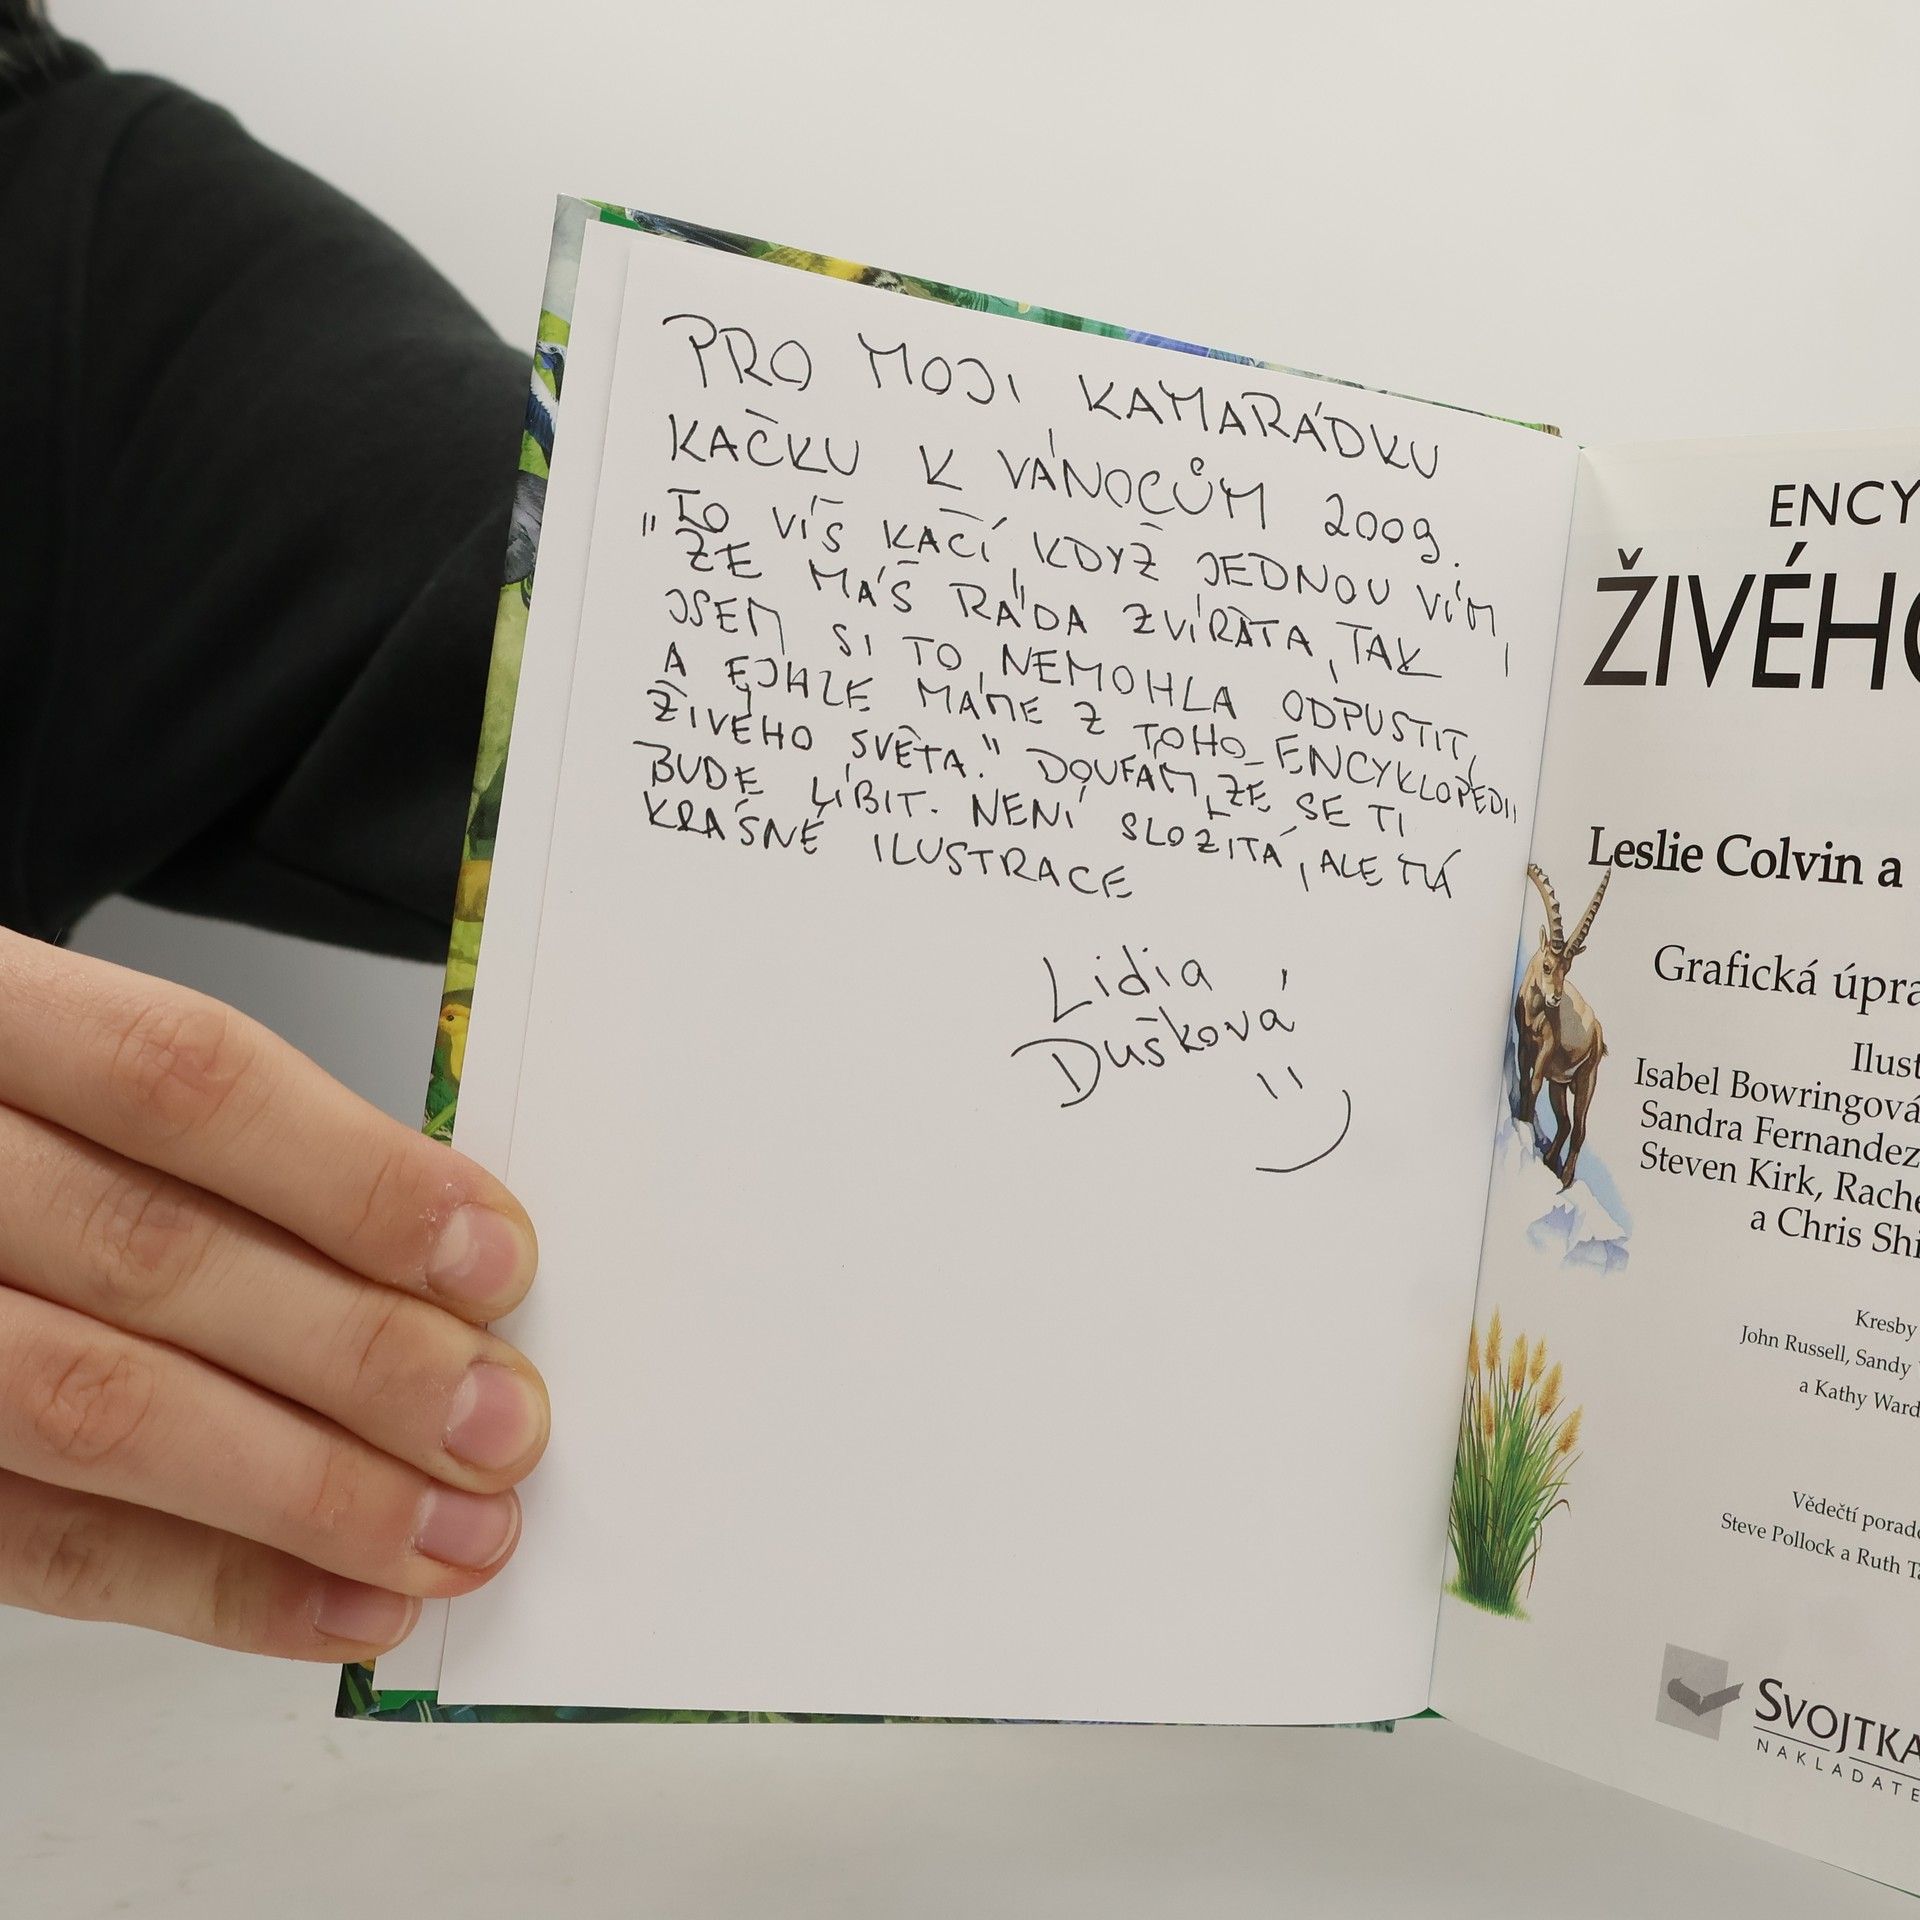 PRO MOJI KAMARÁDKU
KAČKU K VÁNOCŮM 2009.
"TO VÍŠ KAČÍ, KDYŽ JEDNOU VÍM,
ŽE MÁŠ RÁDA ZVÍŘATA, TAK
JSEM SI TO NEMOHLA ODPUSTIT,
A EJHLE MÁME Z TOHO ENCYKLOPEDII
ŽIVÉHO SVĚTA." DOUFÁM, ŽE SE TI
BUDE LÍBIT. NENÍ SLOŽITÁ, ALE MÁ
KRÁSNÉ ILUSTRACE
Lidia
Dušková
ENCY
ŽIVÉHO
Leslie Colvin a
Grafická úpra
Ilust
Isabel Bowringová
Sandra Fernandez
Steven Kirk, Rache
a Chris Shi
Kresby
John Russell, Sandy
a Kathy Ward
Vědečtí porad
Steve Pollock a Ruth Ta
SVOJTKA
NAKLADATE